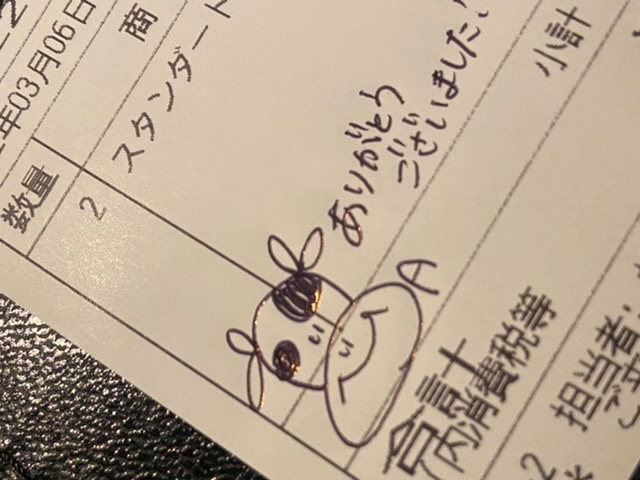 年03月06日
商
数量
2 スタンダート
ありがとう
ございました!
小計
合計
内消費税等
担当者: